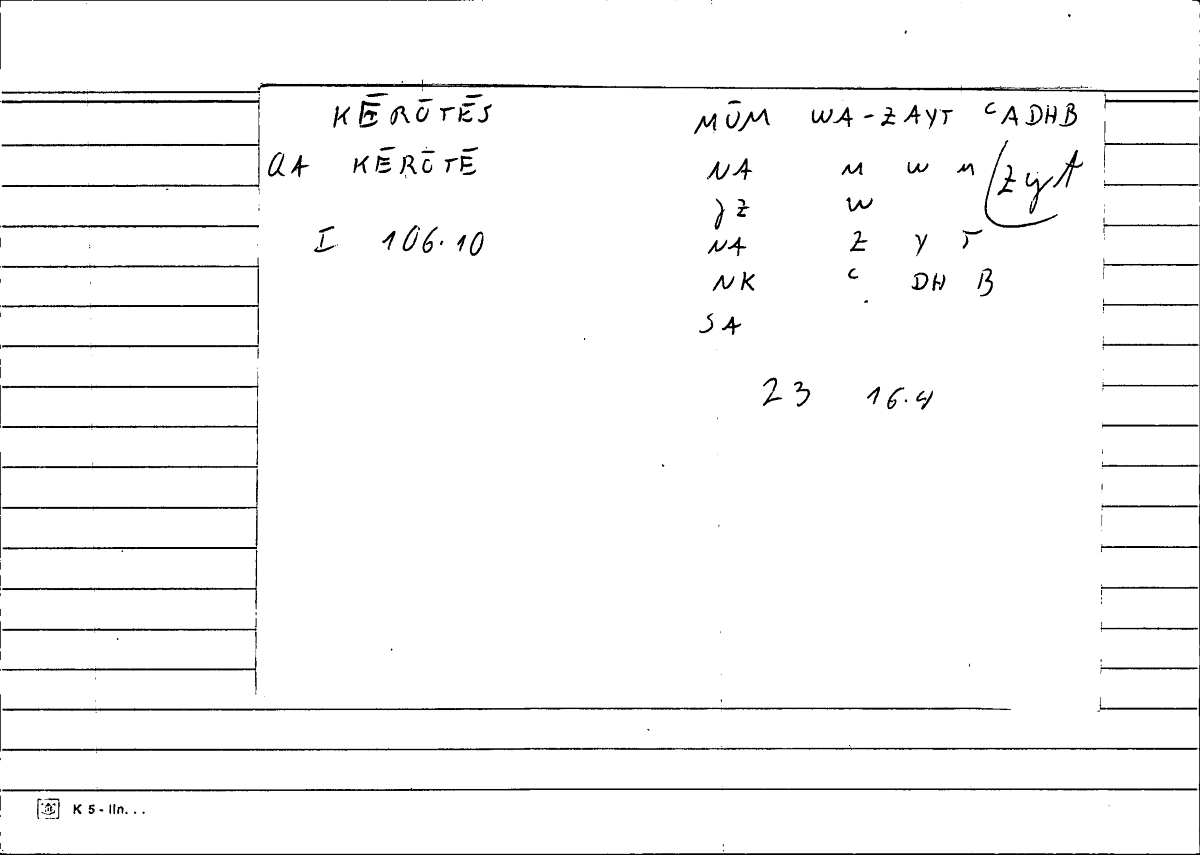 KĒRŪTĒS MŪM WA-ZAYT ʿADHB
QA KĒRŪTĒ NA M W M zyt
γZ W
I 106.10 NA Z Y T
NK ʿ DH B
SA
23 16.4
K 5 - lin...